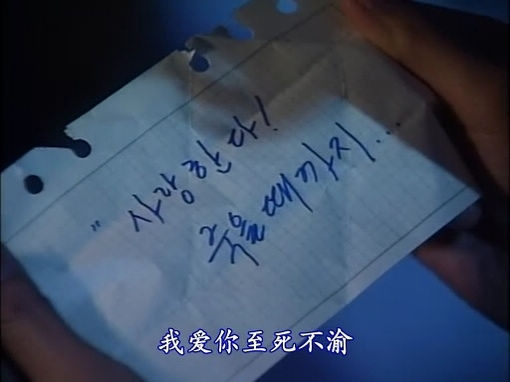 " 사랑한다!
죽을때까지...
我爱你至死不渝